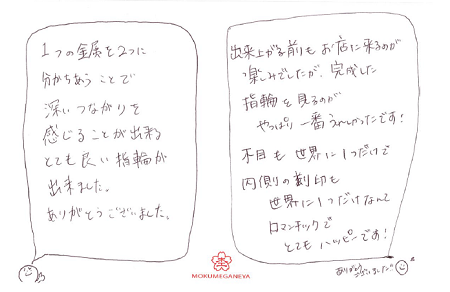 1つの金属を2つに
分かちあうことで
深いつながりを
感じることが出来る
とても良い指輪が
出来ました。
ありがとうございました。
出来上がる前もお店に来るのが
楽しみでしたが、完成した
指輪を見るのが
やっぱり一番うれしかったです!
木目も世界に1つだけで
内側の刻印も
世界に1つだけなんて
ロマンチックで
とてもハッピーです!
ありがとう
ございました
MOKUMEGANEYA